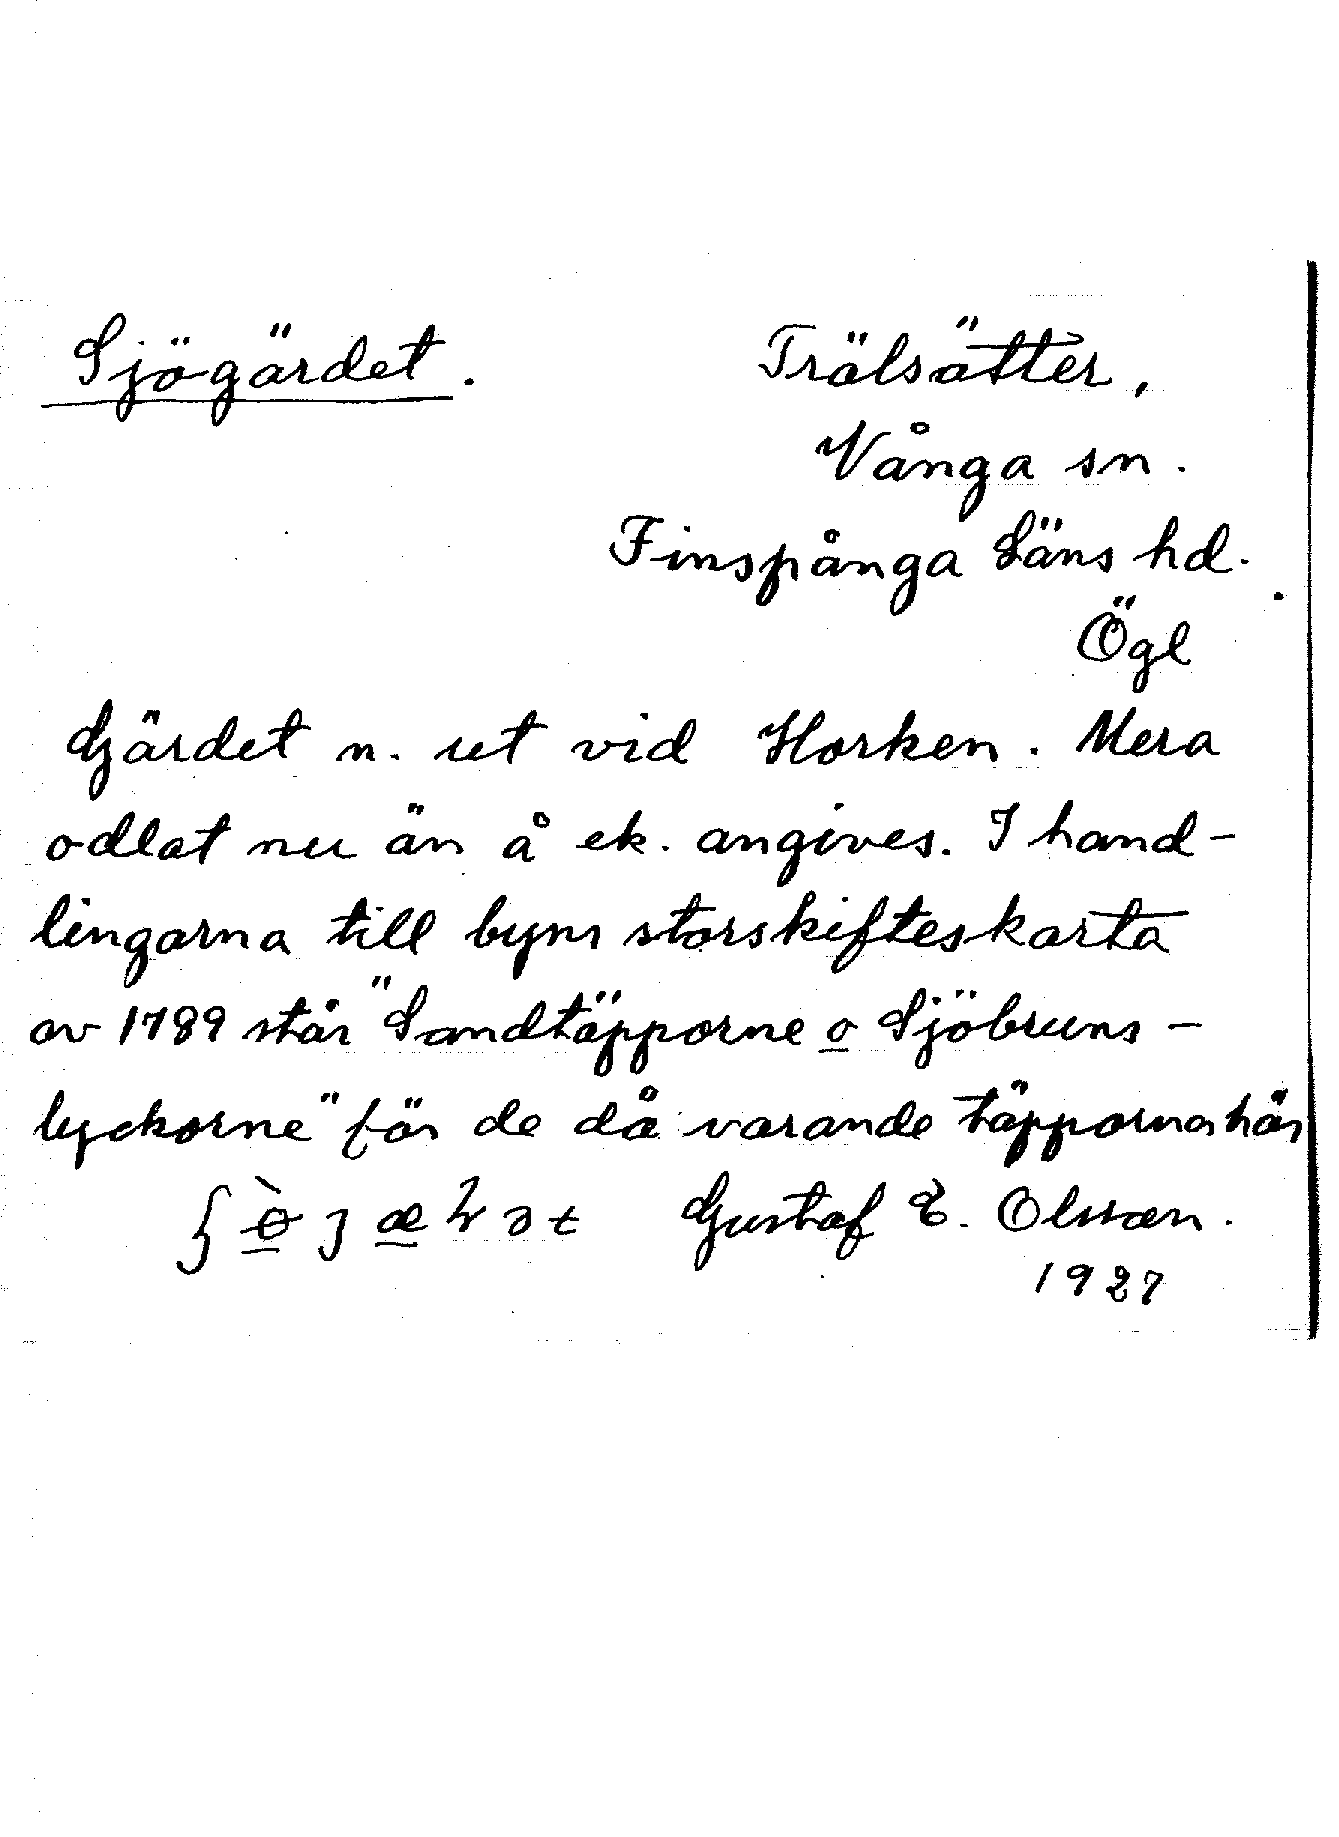 Sjögärdet.
Trälsätter,
Vånga sn.
Finspånga Läns hd.
Ögl
Gärdet n. ut vid Horken. Mera
odlat nu än å ek. angives. I hand-
lingarna till byns storskifteskarta
av 1789 står "Sandtäpporne o Sjöbruns-
lyckorne" för de då varande täpporna här
Gustaf E. Olsson.
1927